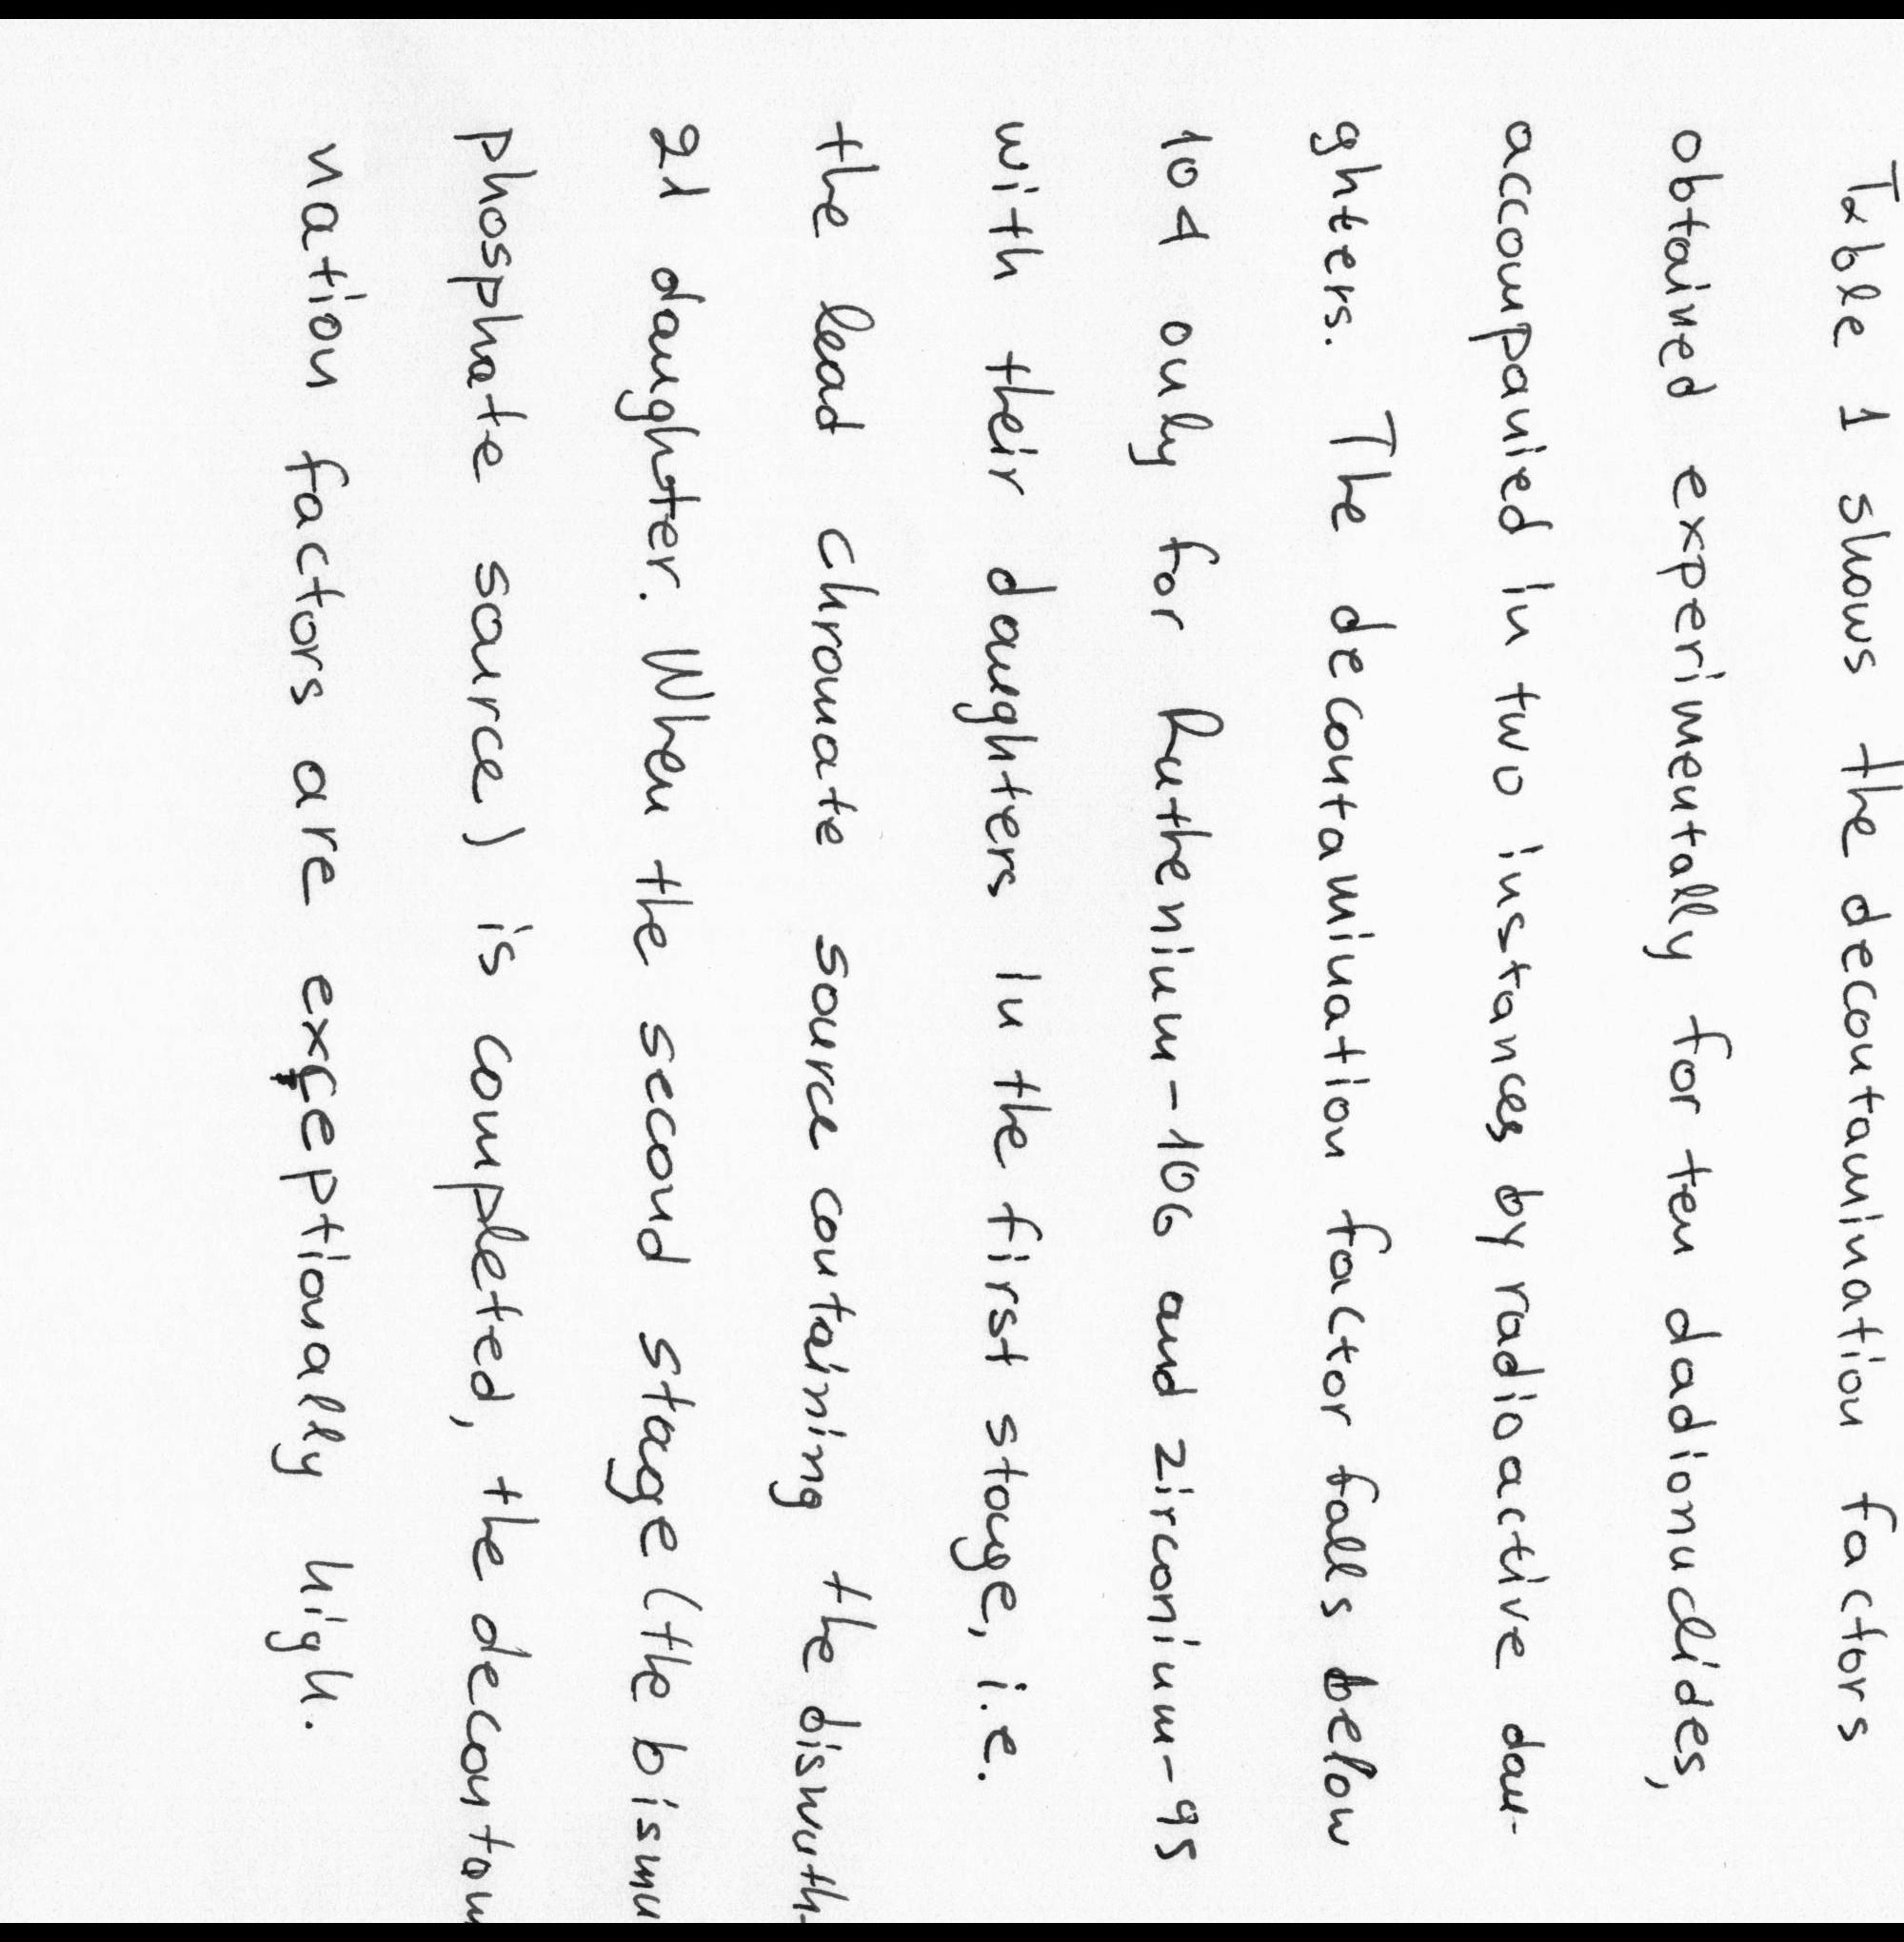 Table 1 shows the decontamination factors
obtained experimentally for ten dadionuclides,
accompanied in two instances by radioactive dau-
ghters. The decontamination factor falls below
104 only for Ruthenium-106 and zirconium-95
with their daughters in the first stage, i.e.
the lead chromate source containing the bismuth-
21 daughter. When the second stage (the bismu
phosphate source) is completed, the decontam
nation factors are exceptionally high.